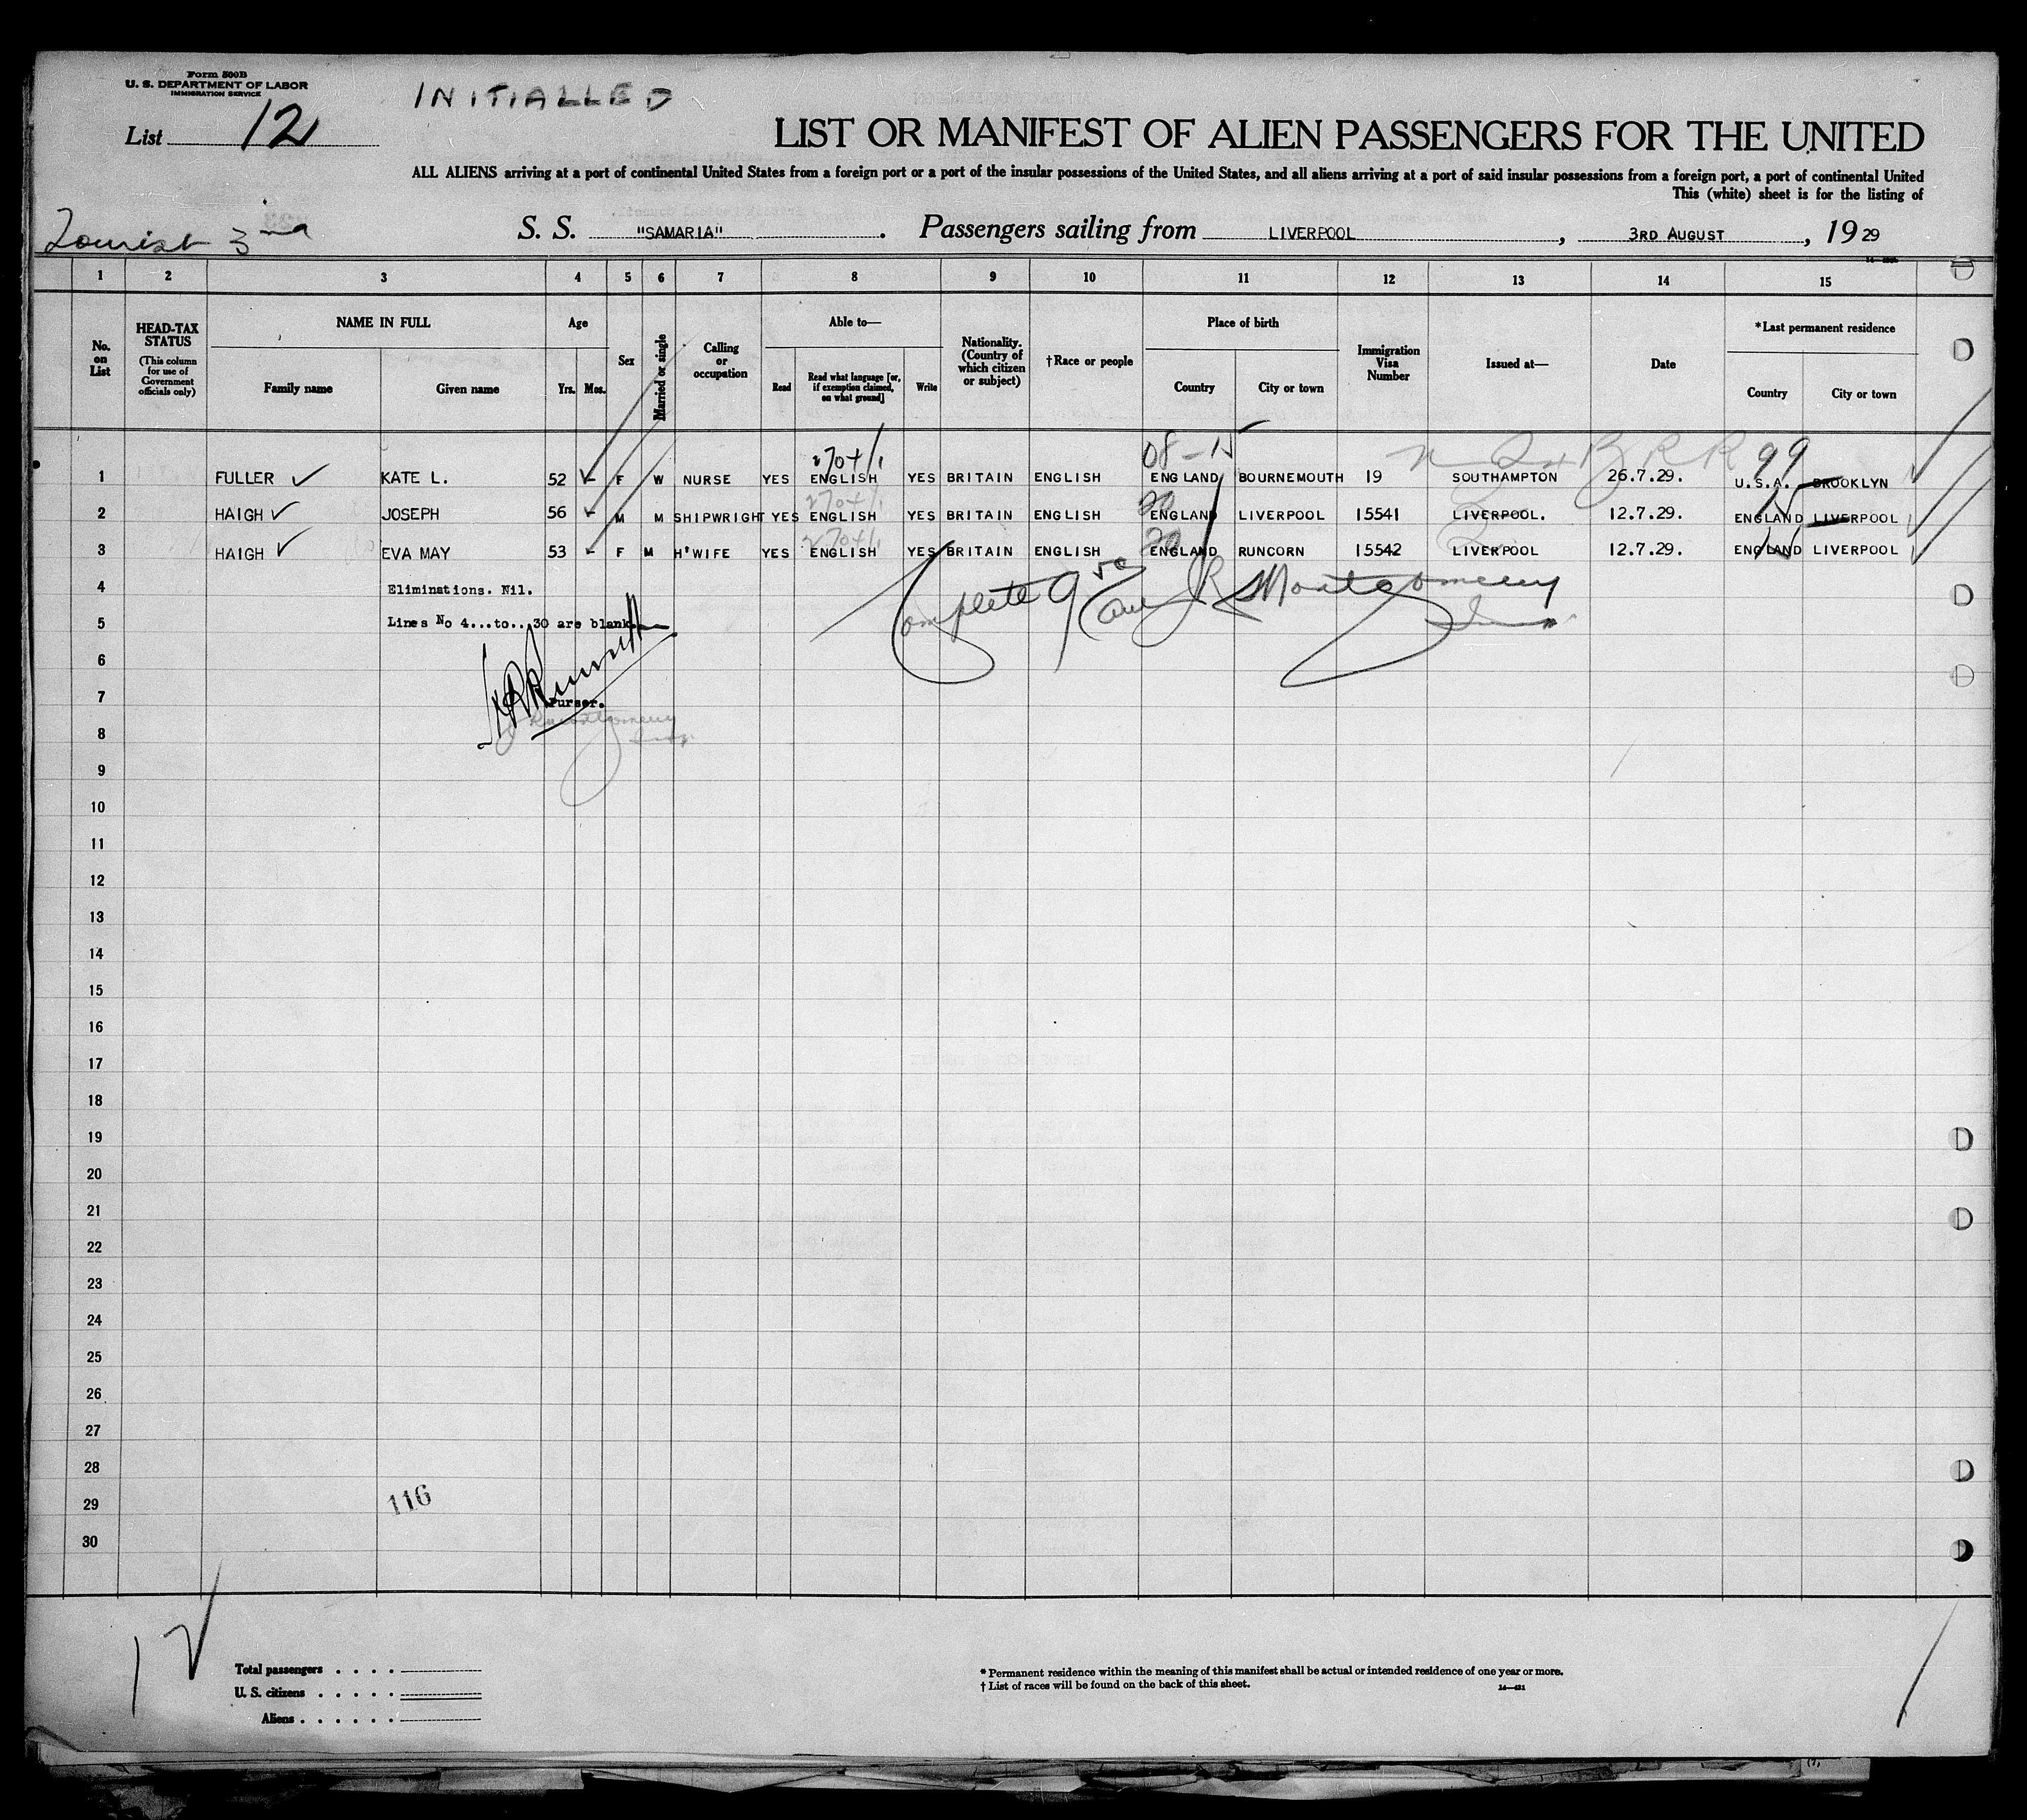 Form 500B
U. S. DEPARTMENT OF LABOR
IMMIGRATION SERVICE
INITIALLED
List 12
LIST OR MANIFEST OF ALIEN PASSENGERS FOR THE UNITED
ALL ALIENS arriving at a port of continental United States from a foreign port or a port of the insular possessions of the United States, and all aliens arriving at a port of said insular possessions from a foreign port, a port of continental United
This (white) sheet is for the listing of
Tourist 3rd
S. S. "SAMARIA". Passengers sailing from LIVERPOOL, 3RD AUGUST, 1929
1 2 3 4 5 6 7 8 9 10 11 12 13 14 15
No. on List
HEAD-TAX STATUS (This column for use of Government officials only)
NAME IN FULL
Family name
Given name
Age
Yrs. Mos.
Sex
Married or single
Calling or occupation
Able to—
Read
Read what language [or, if exemption claimed, on what ground]
Write
Nationality. (Country of which citizen or subject)
†Race or people
Place of birth
Country
City or town
Immigration Visa Number
Issued at—
Date
*Last permanent residence
Country
City or town
08-15 99
1 FULLER KATE L. 52 - F W NURSE YES ENGLISH YES BRITAIN ENGLISH ENGLAND BOURNEMOUTH 19 SOUTHAMPTON 26.7.29. U.S.A. BROOKLYN
2 HAIGH JOSEPH 56 - M M SHIPWRIGHT YES ENGLISH YES BRITAIN ENGLISH ENGLAND LIVERPOOL 15541 LIVERPOOL. 12.7.29. ENGLAND LIVERPOOL
3 HAIGH EVA MAY 53 - F M H'WIFE YES ENGLISH YES BRITAIN ENGLISH ENGLAND RUNCORN 15542 LIVERPOOL 12.7.29. ENGLAND LIVERPOOL
4 Eliminations. Nil.
Complete Montgomery
5 Lines No 4...to...30 are blank.
6
7 Purser.
Montgomery
8
9
10
11
12
13
14
15
16
17
18
19
20
21
22
23
24
25
26
27
28
29 116
30
12
Total passengers
U. S. citizens
Aliens
* Permanent residence within the meaning of this manifest shall be actual or intended residence of one year or more.
† List of races will be found on the back of this sheet.
14—431